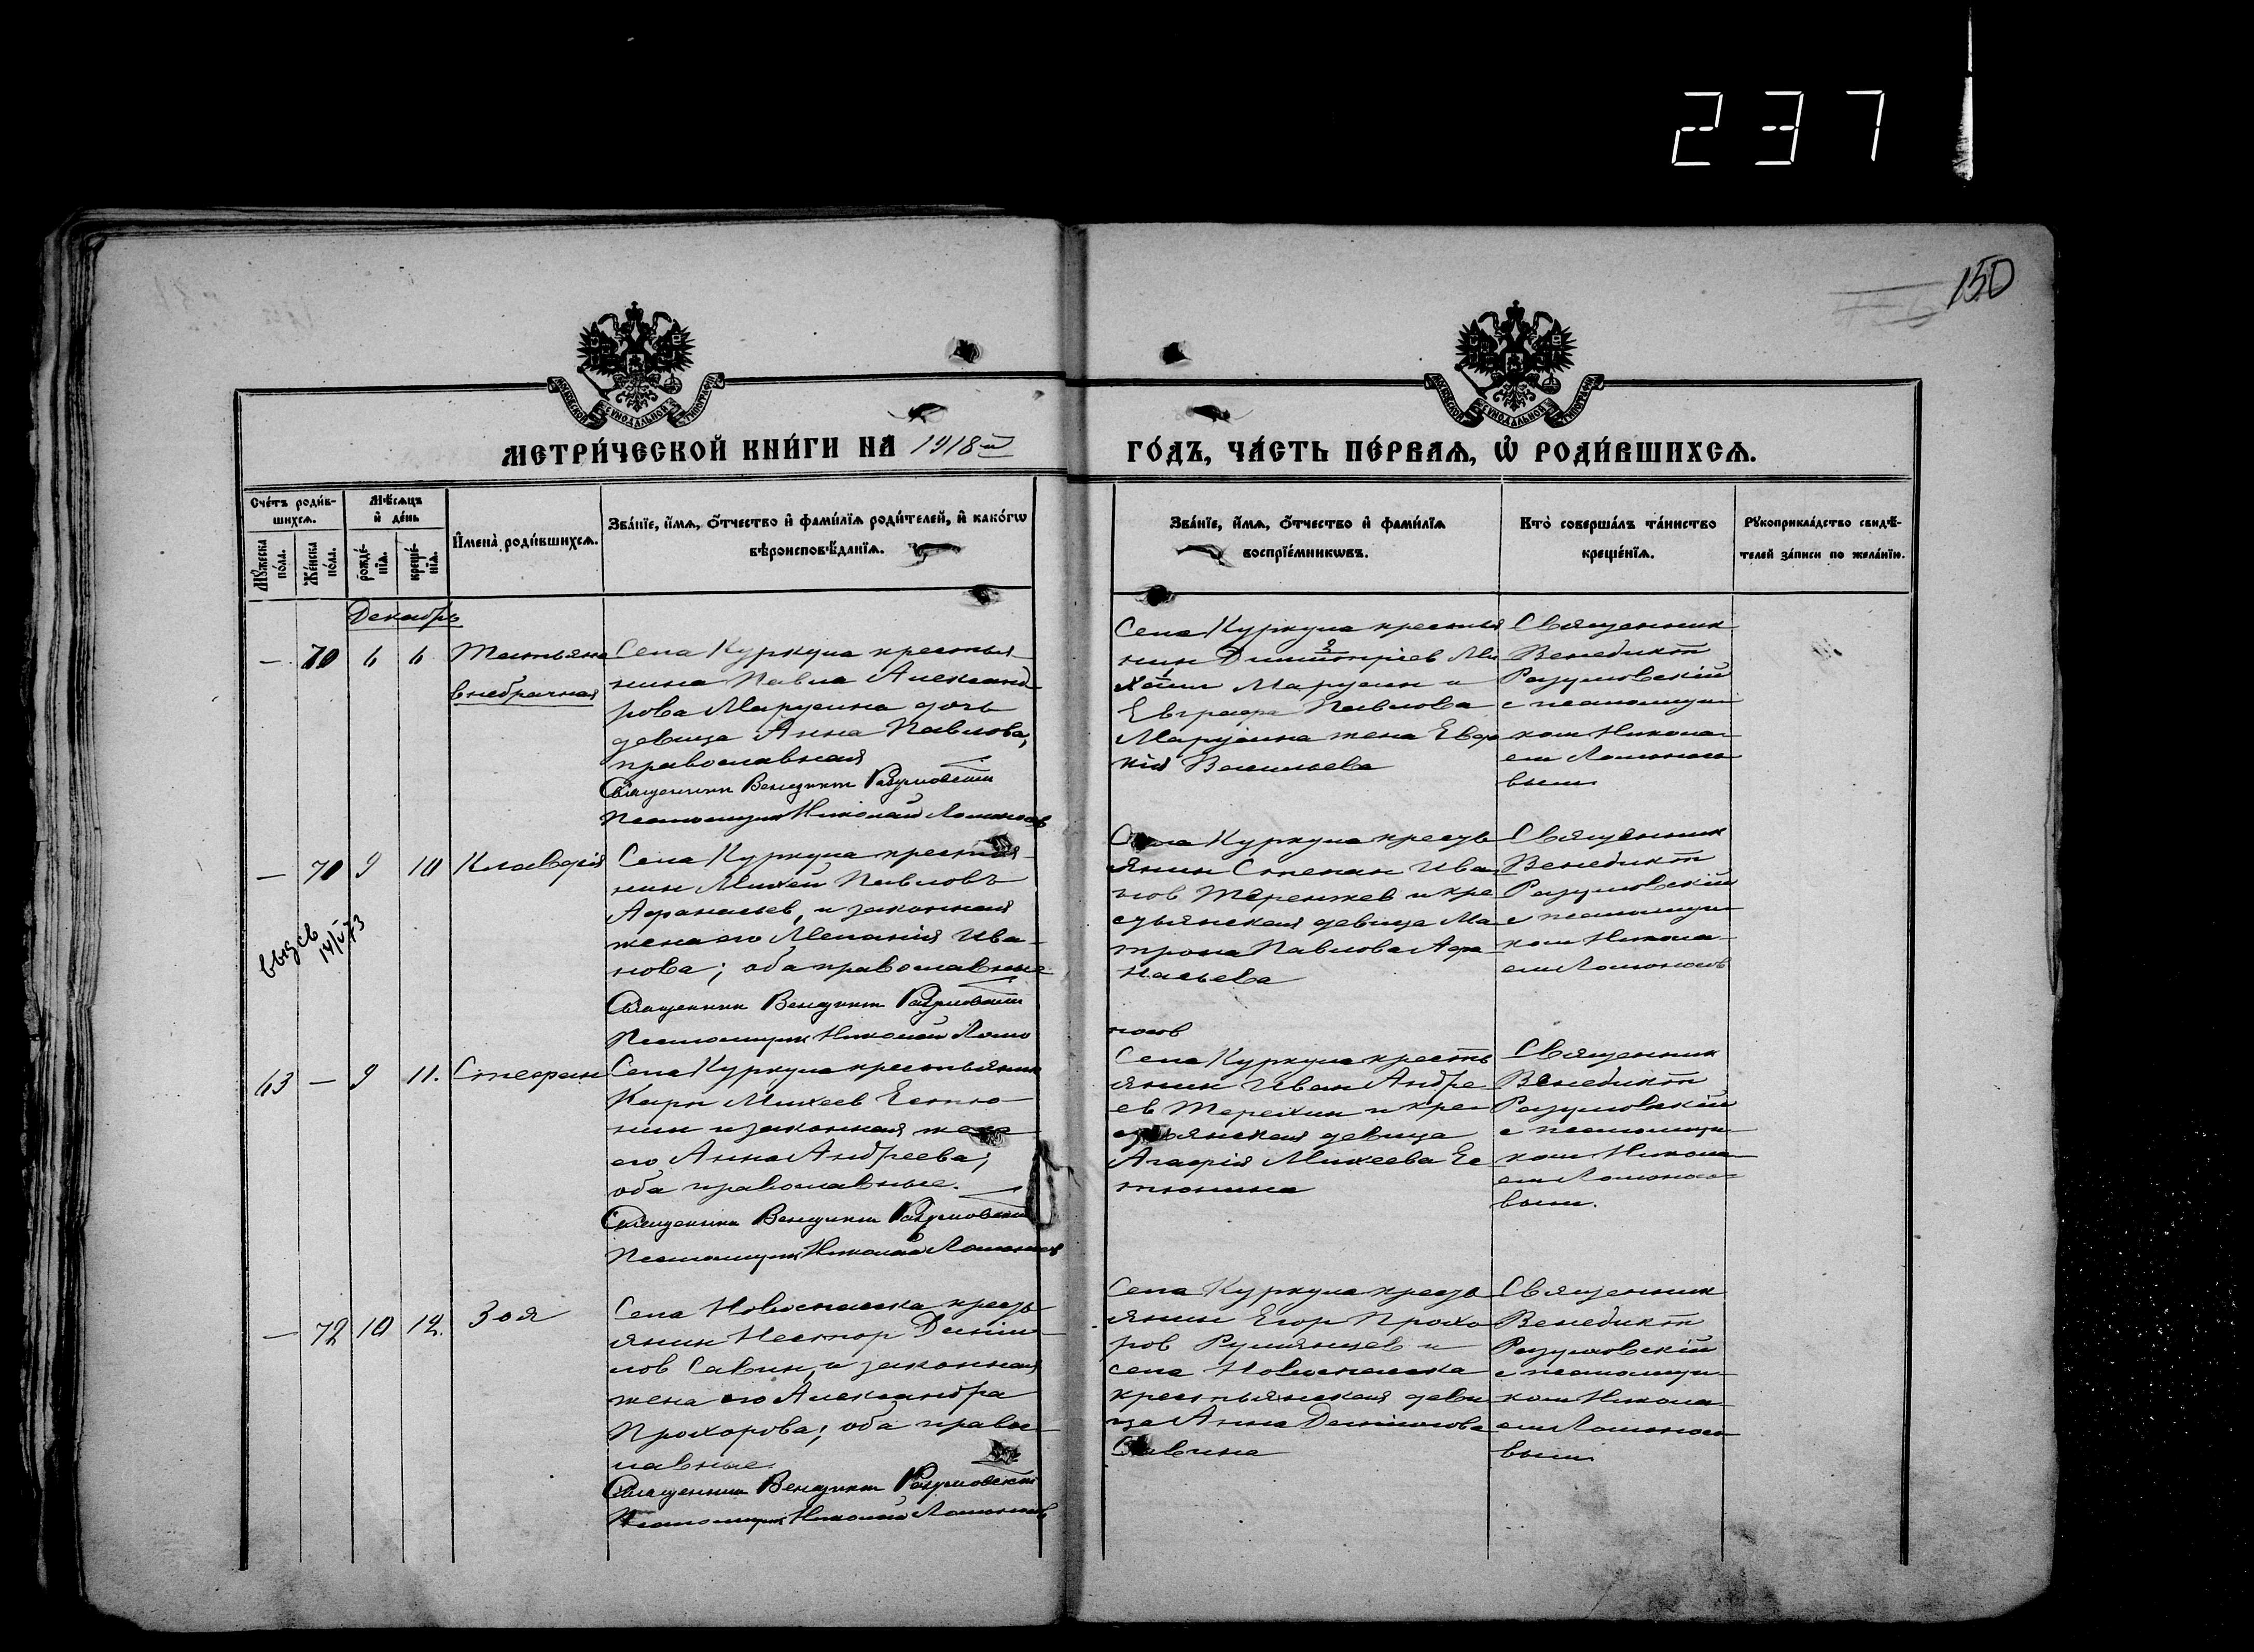 237
150
МЕТРИ́ЧЕСКОЙ КНИ́ГИ НА 1918й
ГО́ДЪ, ЧА́СТЬ ПЕ́РВАѦ, Ѽ РОДИ́ВШИХСѦ.
Сче́тъ роди́в-
шихсѧ.
Мѣ́сѧцъ
и҆ де́нь
Мꙋ́жеска
по́ла.
Же́нска
по́ла.
рожде́-
нїѧ.
креще́-
нїѧ.
И҆мена̀ роди́вшихсѧ.
Зва́нїе, и҆́мѧ, ѻ҆́тчество и҆ фами́лїѧ роди́телей, и҆ како́гѡ
вѣроисповѣ́данїѧ.
Зва́нїе, и҆́мѧ, ѻ҆́тчество и҆ фами́лїѧ
воспрїе́мникѡвъ.
Кто̀ соверша́лъ та́инство
креще́нїѧ.
Рꙋкоприкла́дство свидѣ́-
телей за́писи по жела́нїю.
Декабрь
— 70 6 6 Татьяна
внебрачная
Села Куркула крестья
нина Павла Александ
рова Марусина дочь
девица Анна Павлова,
православная
Священник Венедикт Разумовский
Псаломщик Николай Ломоносов
Села Куркула крестья
нин Димитріев Ми
хаил Марусин и
Евграфа Павлова
Марусина жена Евдо
кія Васильева
Священник
Венедикт
Разумовскій
с псаломщи
ком Никола
ем Ломоносо
вым
— 71 9 10 Клавдія
Села Куркула крестья
нин Михей Павловъ
Афанасьев, и законная
жена его Меланія Ива-
нова; оба православные
Священник Венедикт Разумовский
Псаломщик Николай Ломо
носов
Села Куркула кресть
янин Степан Ива
нов Терентев и кре
стьянская девица Ма
трона Павлова Афа
насьева
Священник
Венедикт
Разумовскій
с псаломщи
ком Никола
ем Ломоносов
14/V 73
63 — 9 11. Стефан
Села Куркула крестьянин
Карп Михеев Естю
нин и законная жена
его Анна Андреева;
оба православные.
Священник Венедикт Разумовский
Псаломщик Николай Ломоносов
Села Куркула кресть
янин Иван Андре
ев Терехин и кре
стьянская девица
Агафія Михеева Ес
тюнина
Священник
Венедикт
Разумовскій
с псаломщи
ком Никола
ем Ломоносо
вым.
— 72 10 12. Зоя
Села Новоспасска кресть
янин Нестор Дани
лов Савин, и законная
жена его Александра
Прохорова; оба правос
лавные.
Священник Венедикт Разумовский
Псаломщик Николай Ломоносов
Села Куркула кресть
янин Егор Прохо
ров Румянцев и
села Новоспасска
крестьянская деви
ца Анна Данилова
Савина
Священник
Венедикт
Разумовскій
с псаломщи
ком Никола
ем Ломоносо
вым